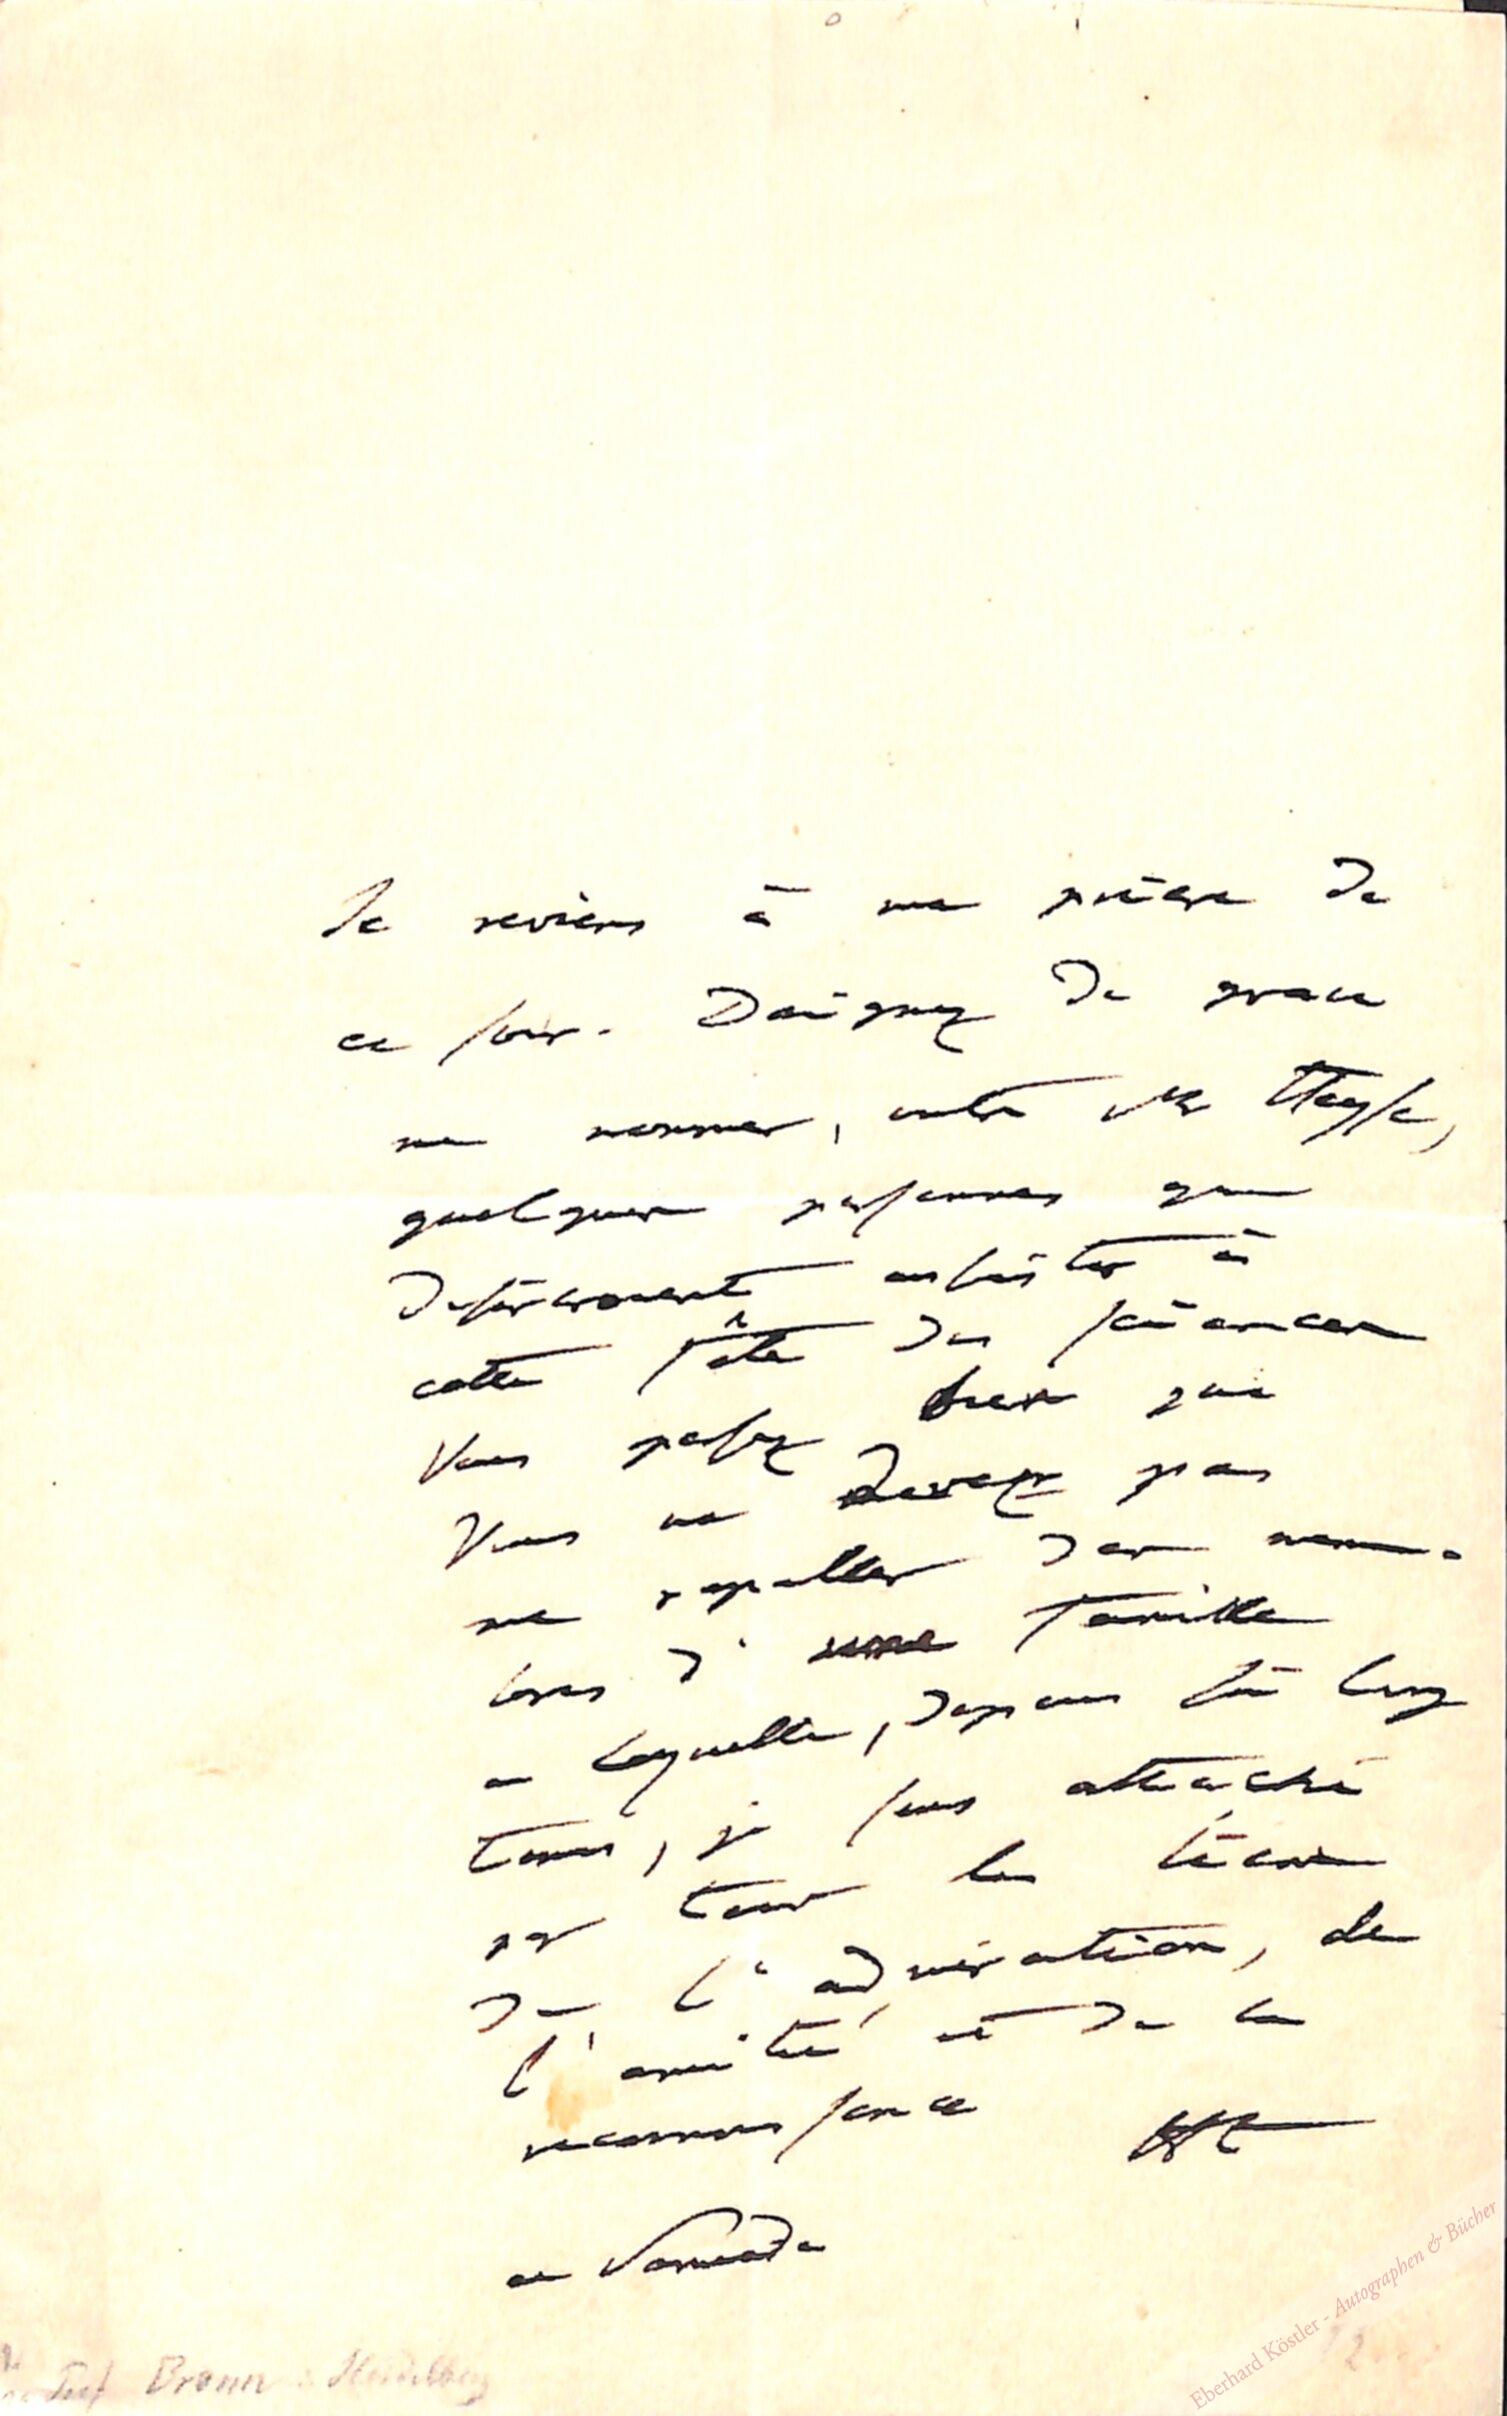 Je reviens à ma prière de
ce soir. Daignez de grace
me nommer, outre Mr Heyse,
quelques personnes qui
desireroient assister à
cette fête des sciences
Vous pensez bien que
Vous ne devez pas
me rappeller des mem-
bres d'une famille
a laquelle, depuis si long
tems, je suis attaché
par tous les liens
de l'admiration, de
l'amitié et de la
reconnoissance
AHt
ce Samedi
Prof Bronn Heidelberg
2
Eberhard Köstler - Autographen & Bücher